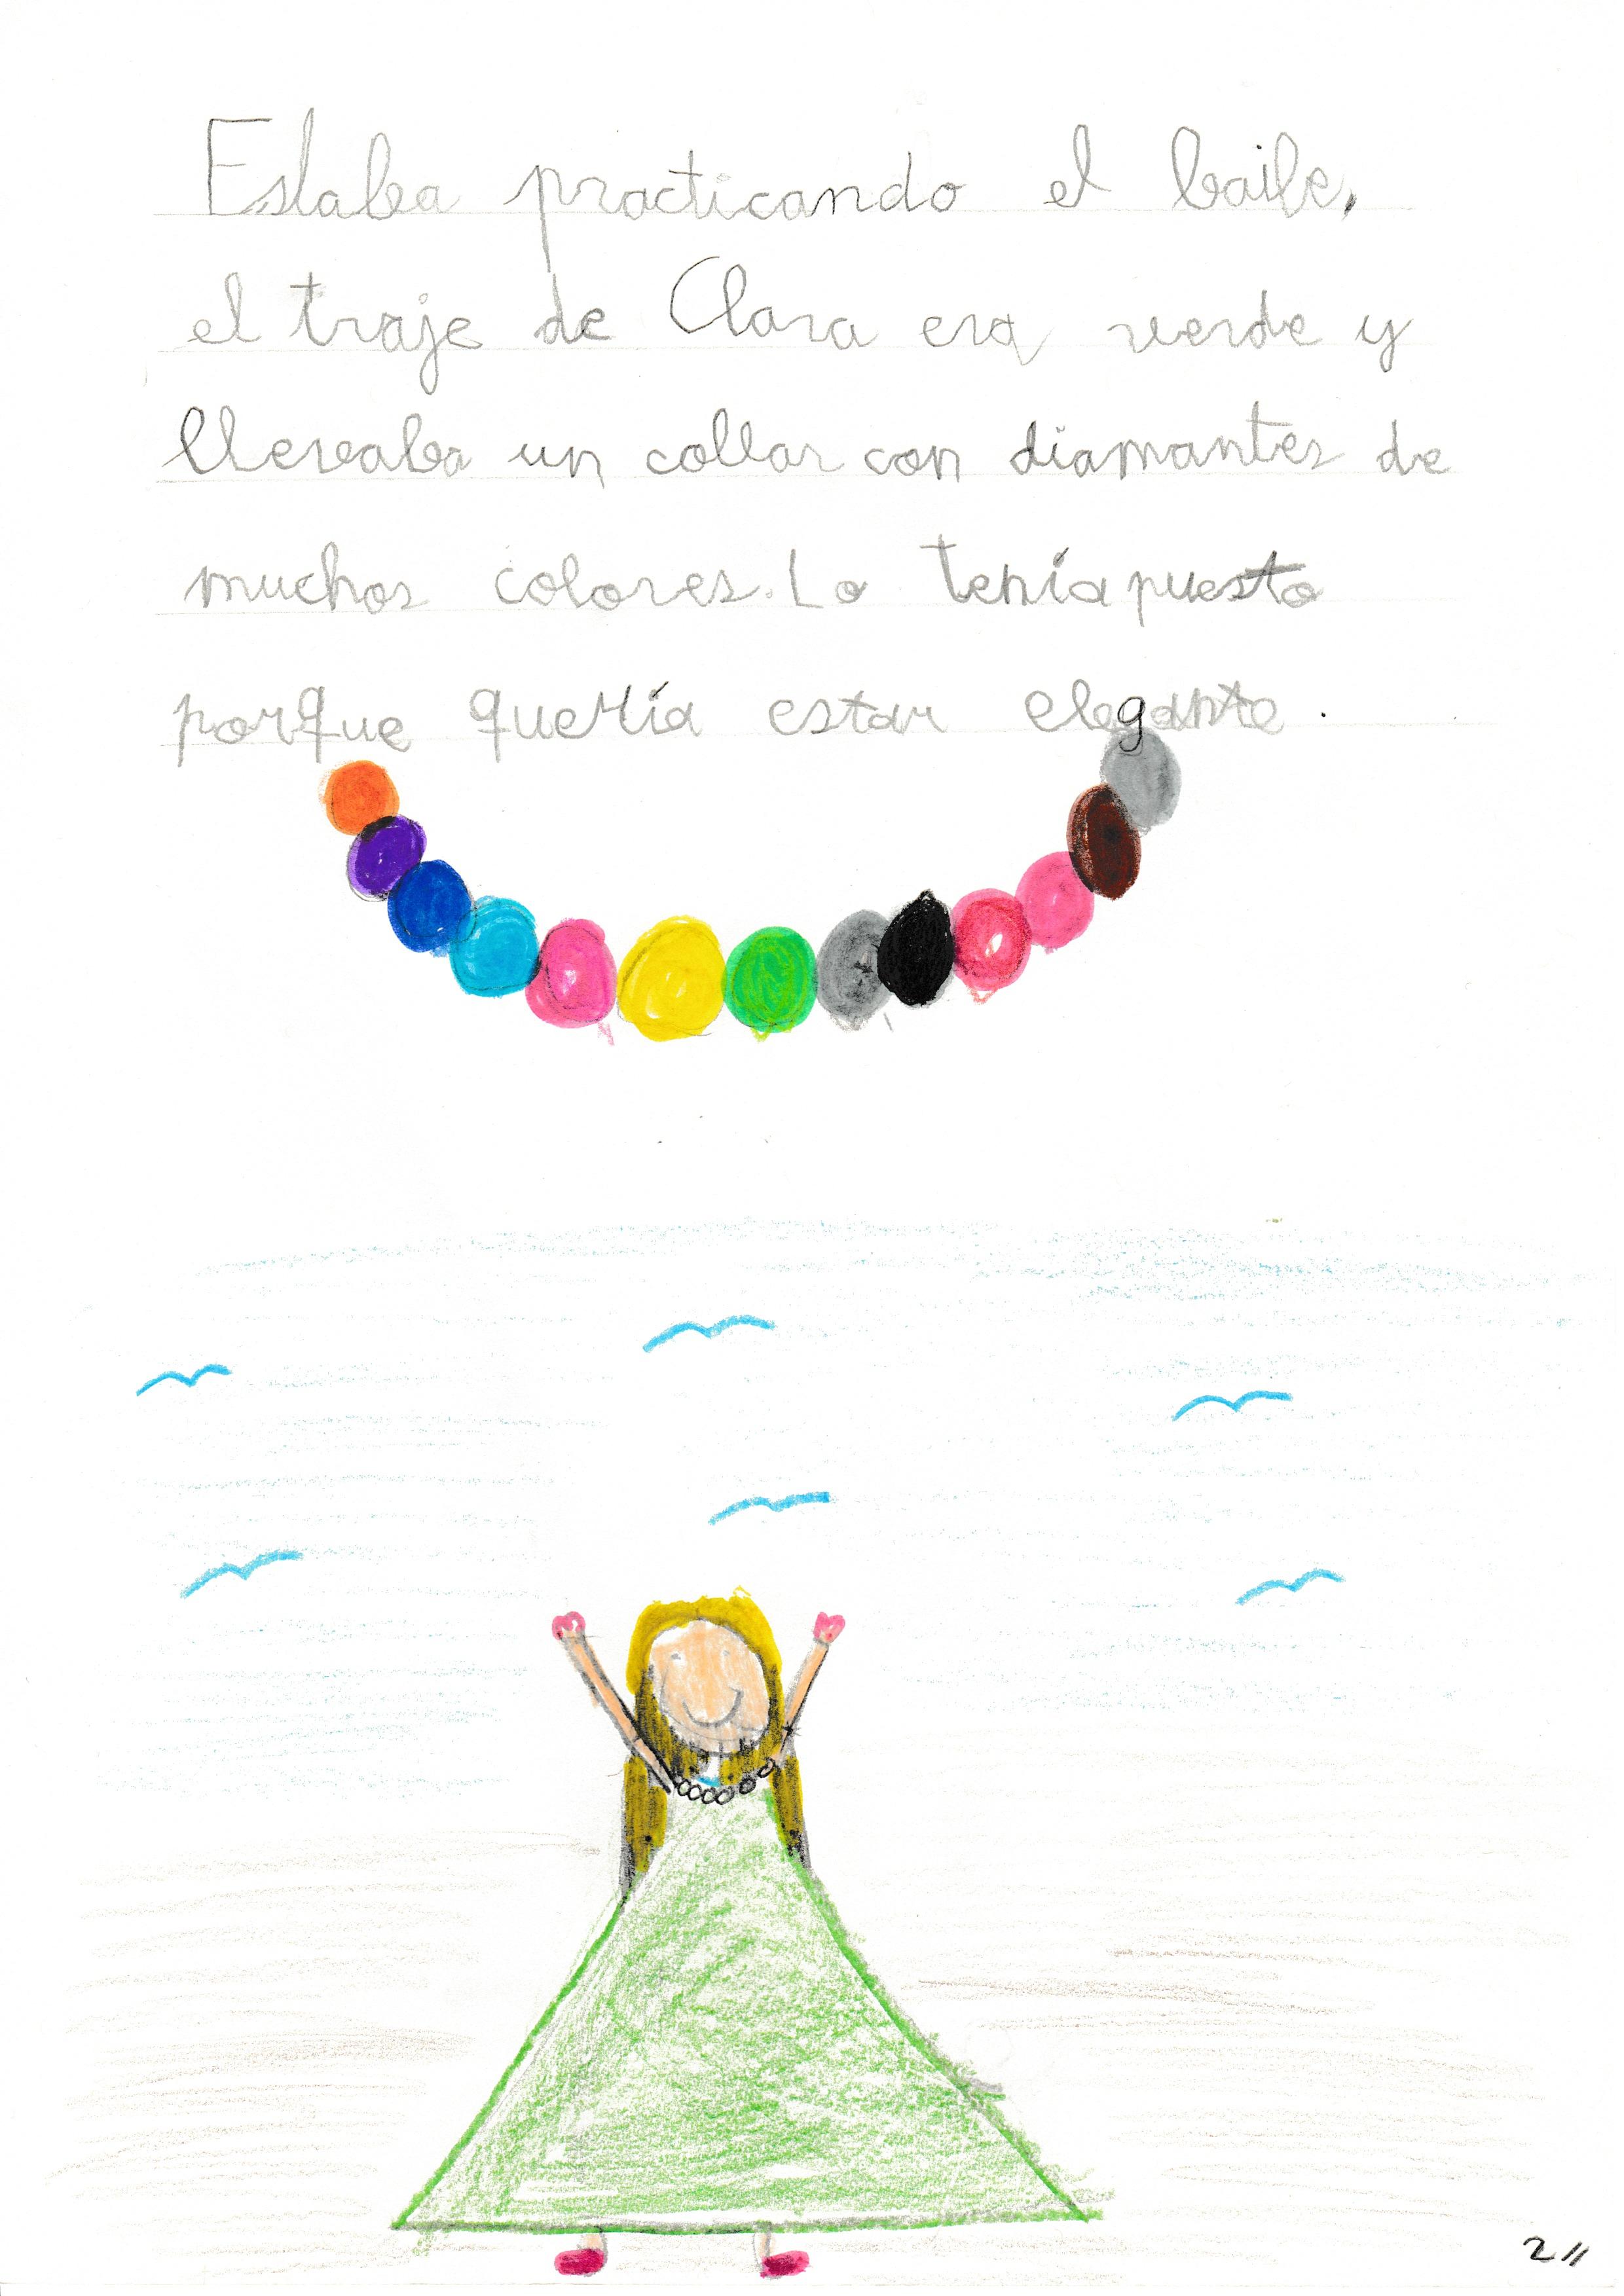 Estaba practicando el baile,
el traje de Clara era verde y
llevaba un collar con diamantes de
muchos colores. Lo tenía puesto
porque quería estar elegante.
2 //